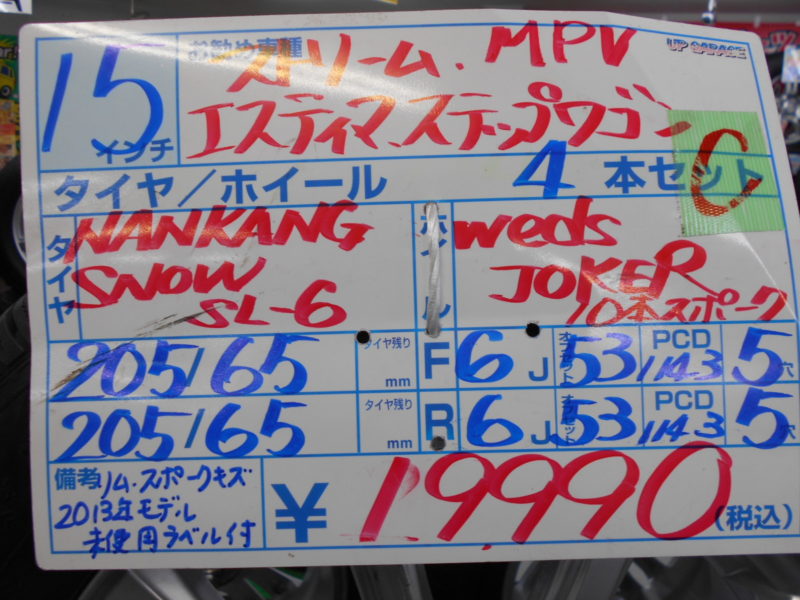 お勧め車種
UP GARAGE
15インチ
ストリーム. MPV
エスティマ、ステップワゴン
C
タイヤ/ホイール 4 本セット
タイヤ
NANKANG
SNOW
SL-6
ホイール
weds
JOKER
10本スポーク
205/65 タイヤ残り mm F 6 J オフセット 53 PCD 114.3 5 穴
205/65 タイヤ残り mm R 6 J オフセット 53 PCD 114.3 5 穴
備考 リム.スポークキズ
2013年モデル
未使用ラベル付
¥19990 (税込)